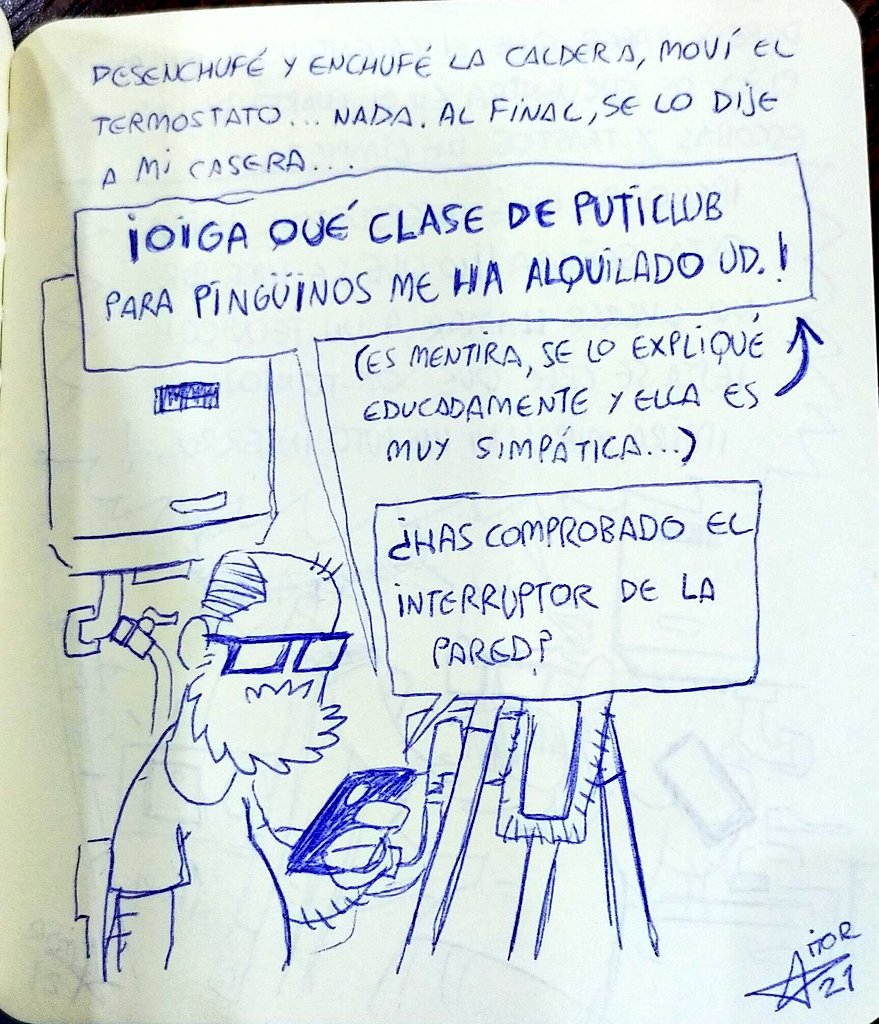 DESENCHUFÉ Y ENCHUFÉ LA CALDERA, MOVÍ EL
TERMOSTATO... NADA. AL FINAL, SE LO DIJE
A MI CASERA...
¡OIGA QUÉ CLASE DE PUTICLUB
PARA PINGÜINOS ME HA ALQUILADO UD.!
(ES MENTIRA, SE LO EXPLIQUÉ
EDUCADAMENTE Y ELLA ES
MUY SIMPÁTICA...)
¿HAS COMPROBADO EL
INTERRUPTOR DE LA
PARED?
AITOR
21